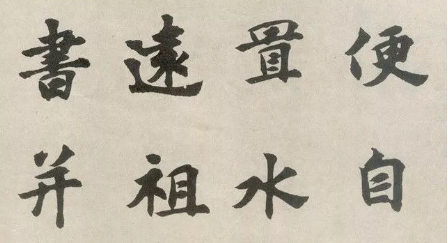 便自
置水
遠祖
書并